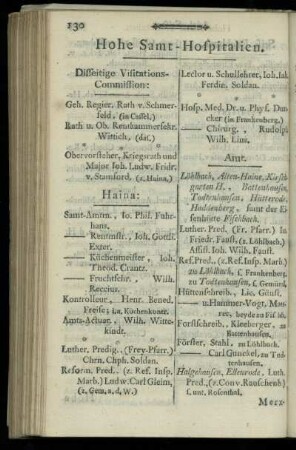 130
Hohe Samt-Hospitalien.
Disseitige Visitations-
Commission:
Geh. Regier. Rath v. Schmer-
feld, (in Cassel.)
Rath u. Ob. Renthammersekr.
Wittich, (das.)
Obervorsteher, Kriegsrath und
Major Joh. Ludw. Fridr.
v. Stamford. (z. Haina.)
Haina:
Samt-Amtm. Io. Phil. Fuhr-
hans.
— Rentmstr. Joh. Gottfr.
Exter.
— Küchenmeister, Joh.
Theod. Cruntz.
— Fruchtschr. Wilh.
Reccius.
Kontrolleur, Henr. Bened.
Freise;
Amts-Actuar. Wilh. Witte-
kindt.
Luther. Predig. (Frey-Pfarr.)
Chrn. Chph. Soldan.
Reform. Pred. (z. Ref. Insp.
Marb.) Ludw. Carl Gleim,
(z. Gem. a. d. W.)
Lector u. Schullehrer, Joh. Jak.
Ferdin. Soldan.
Hosp. Med. Dr. u. Phys. Dun-
cker (in Frankenberg.)
— Chirurg. Rudolph
Wilh. Lins.
Amt.
Löhlbach, Alten-Haine, Kirsch-
garten H. Battenhausen,
Todtenhausen, Hüttenrode,
Haddenberg, samt der Ei-
senhütte Fischbach.
Luther. Pred. (Fr. Pfarr.) In
Friedr. Faust, (z. Löhlbach.)
Assist. Joh. Wilh. Faust.
Ref. Pred. (z. Ref. Insp. Marb.)
zu Löhlbach, (z. Frankenberg)
zu Todtenhausen, (z. Gemünd.)
Hüttenschreib. Lic. Günst.
— u. Hammer-Vogt, Mar-
beyde zu Fischb.
Forstschreib. Kieeberger, zu
Battenhausen.
Förster, Stahl, zu Löhlbach.
— Carl Gunckel, zu Tod-
tenhausen.
Halgehausen, Ellenrode, Luth.
Pred. (z. Conv. Rauschenb)
Cunt. Rosenthal.
Merx-